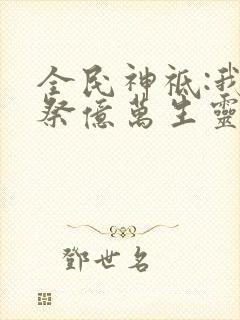 全民神祗:我
祭億萬生靈
鄧世名